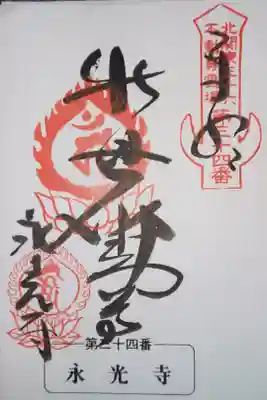 北関東三十六
不動尊霊場第三十四番
奉拝
出世不動尊
永光寺
第三十四番
永光寺